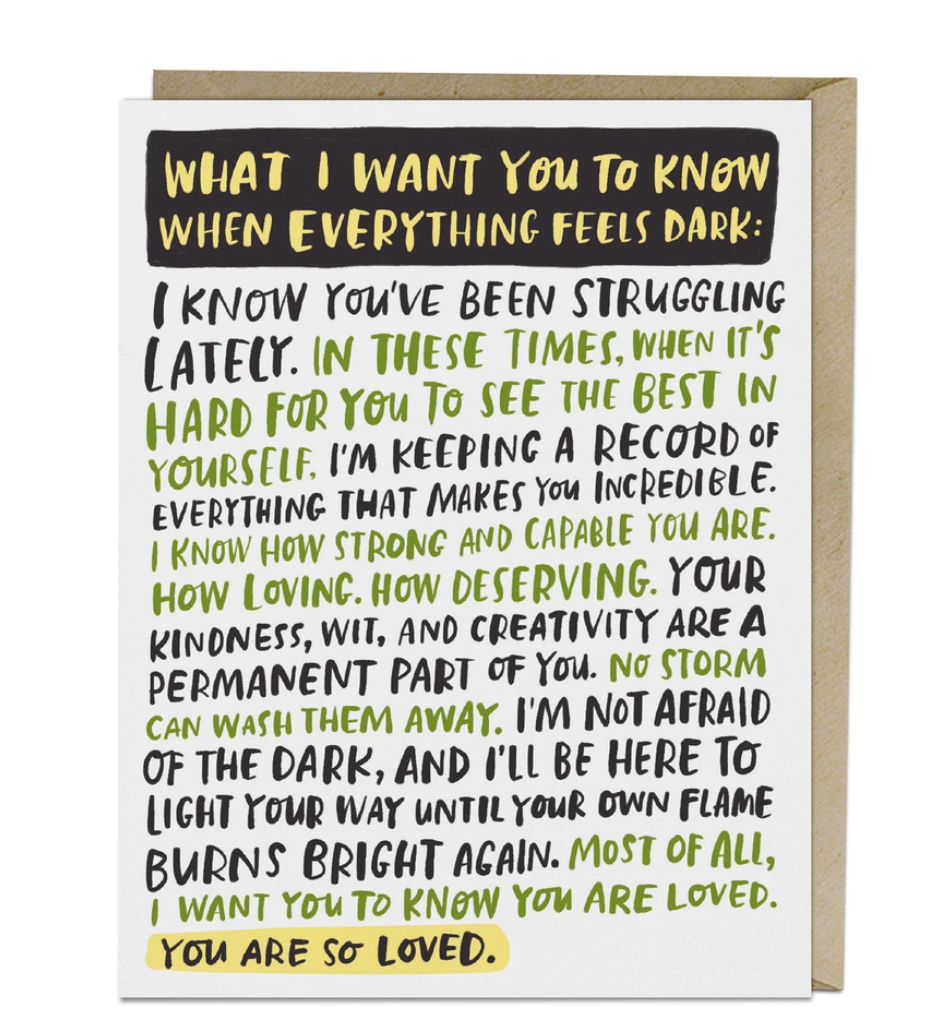 WHAT I WANT YOU TO KNOW
WHEN EVERYTHING FEELS DARK:
I KNOW YOU'VE BEEN STRUGGLING
LATELY. IN THESE TIMES, WHEN IT'S
HARD FOR YOU TO SEE THE BEST IN
YOURSELF, I'M KEEPING A RECORD OF
EVERYTHING THAT MAKES YOU INCREDIBLE.
I KNOW HOW STRONG AND CAPABLE YOU ARE.
HOW LOVING. HOW DESERVING. YOUR
KINDNESS, WIT, AND CREATIVITY ARE A
PERMANENT PART OF YOU. NO STORM
CAN WASH THEM AWAY. I'M NOT AFRAID
OF THE DARK, AND I'LL BE HERE TO
LIGHT YOUR WAY UNTIL YOUR OWN FLAME
BURNS BRIGHT AGAIN. MOST OF ALL,
I WANT YOU TO KNOW YOU ARE LOVED.
YOU ARE SO LOVED.